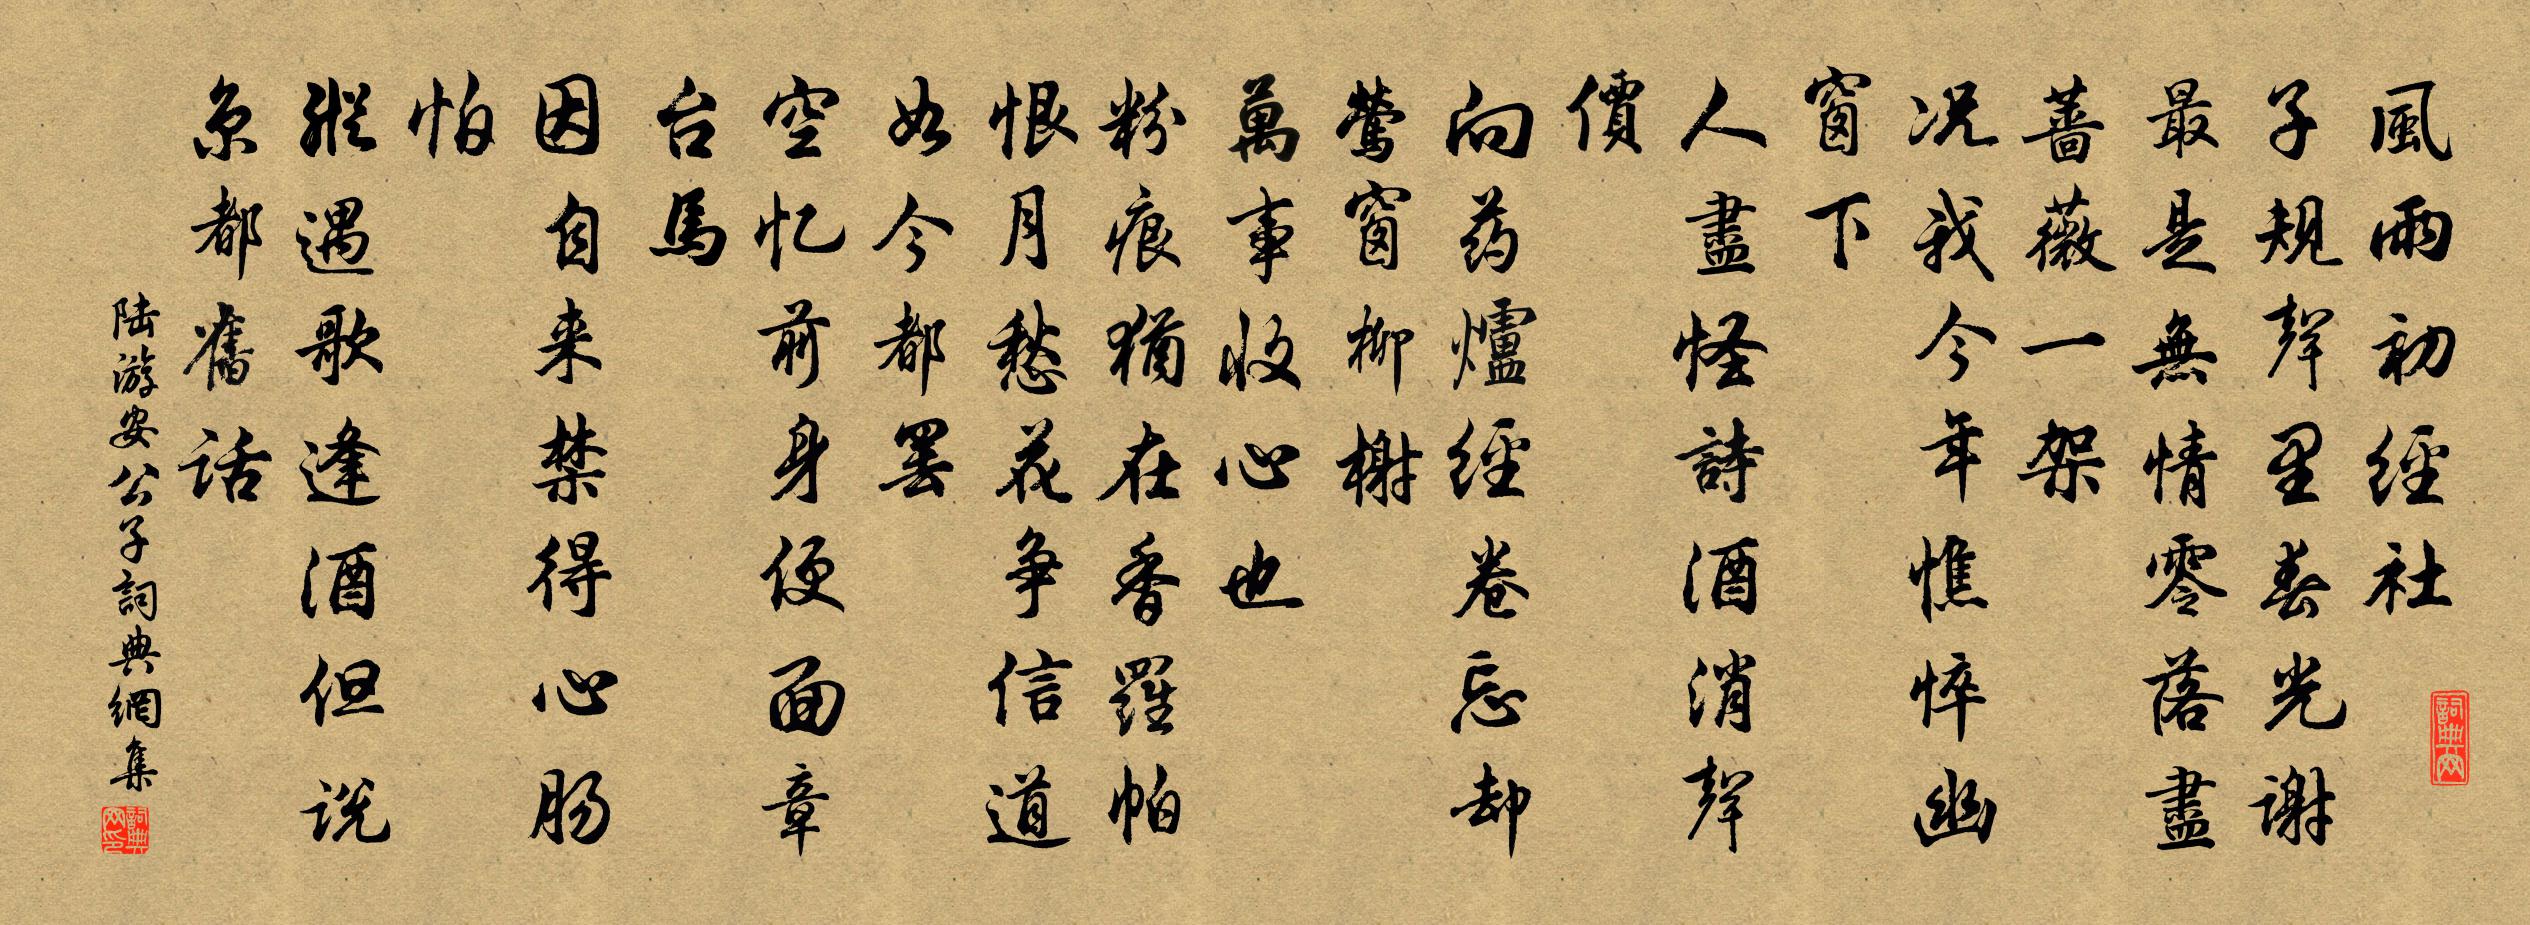 風雨初經社
子規聲里春光謝
最是無情零落盡
薔薇一架
況我今年憔悴幽
窗下
人盡怪詩酒消聲
價
向药爐經卷忘却
鶯窗柳榭
萬事收心也
粉痕猶在香羅帕
恨月愁花争信道
如今都罷
空忆前身便面章
台馬
因自来禁得心肠
怕
縱遇歌逢酒但说
京都舊话
陆游安公子詞典網集
詞典网
詞典网印